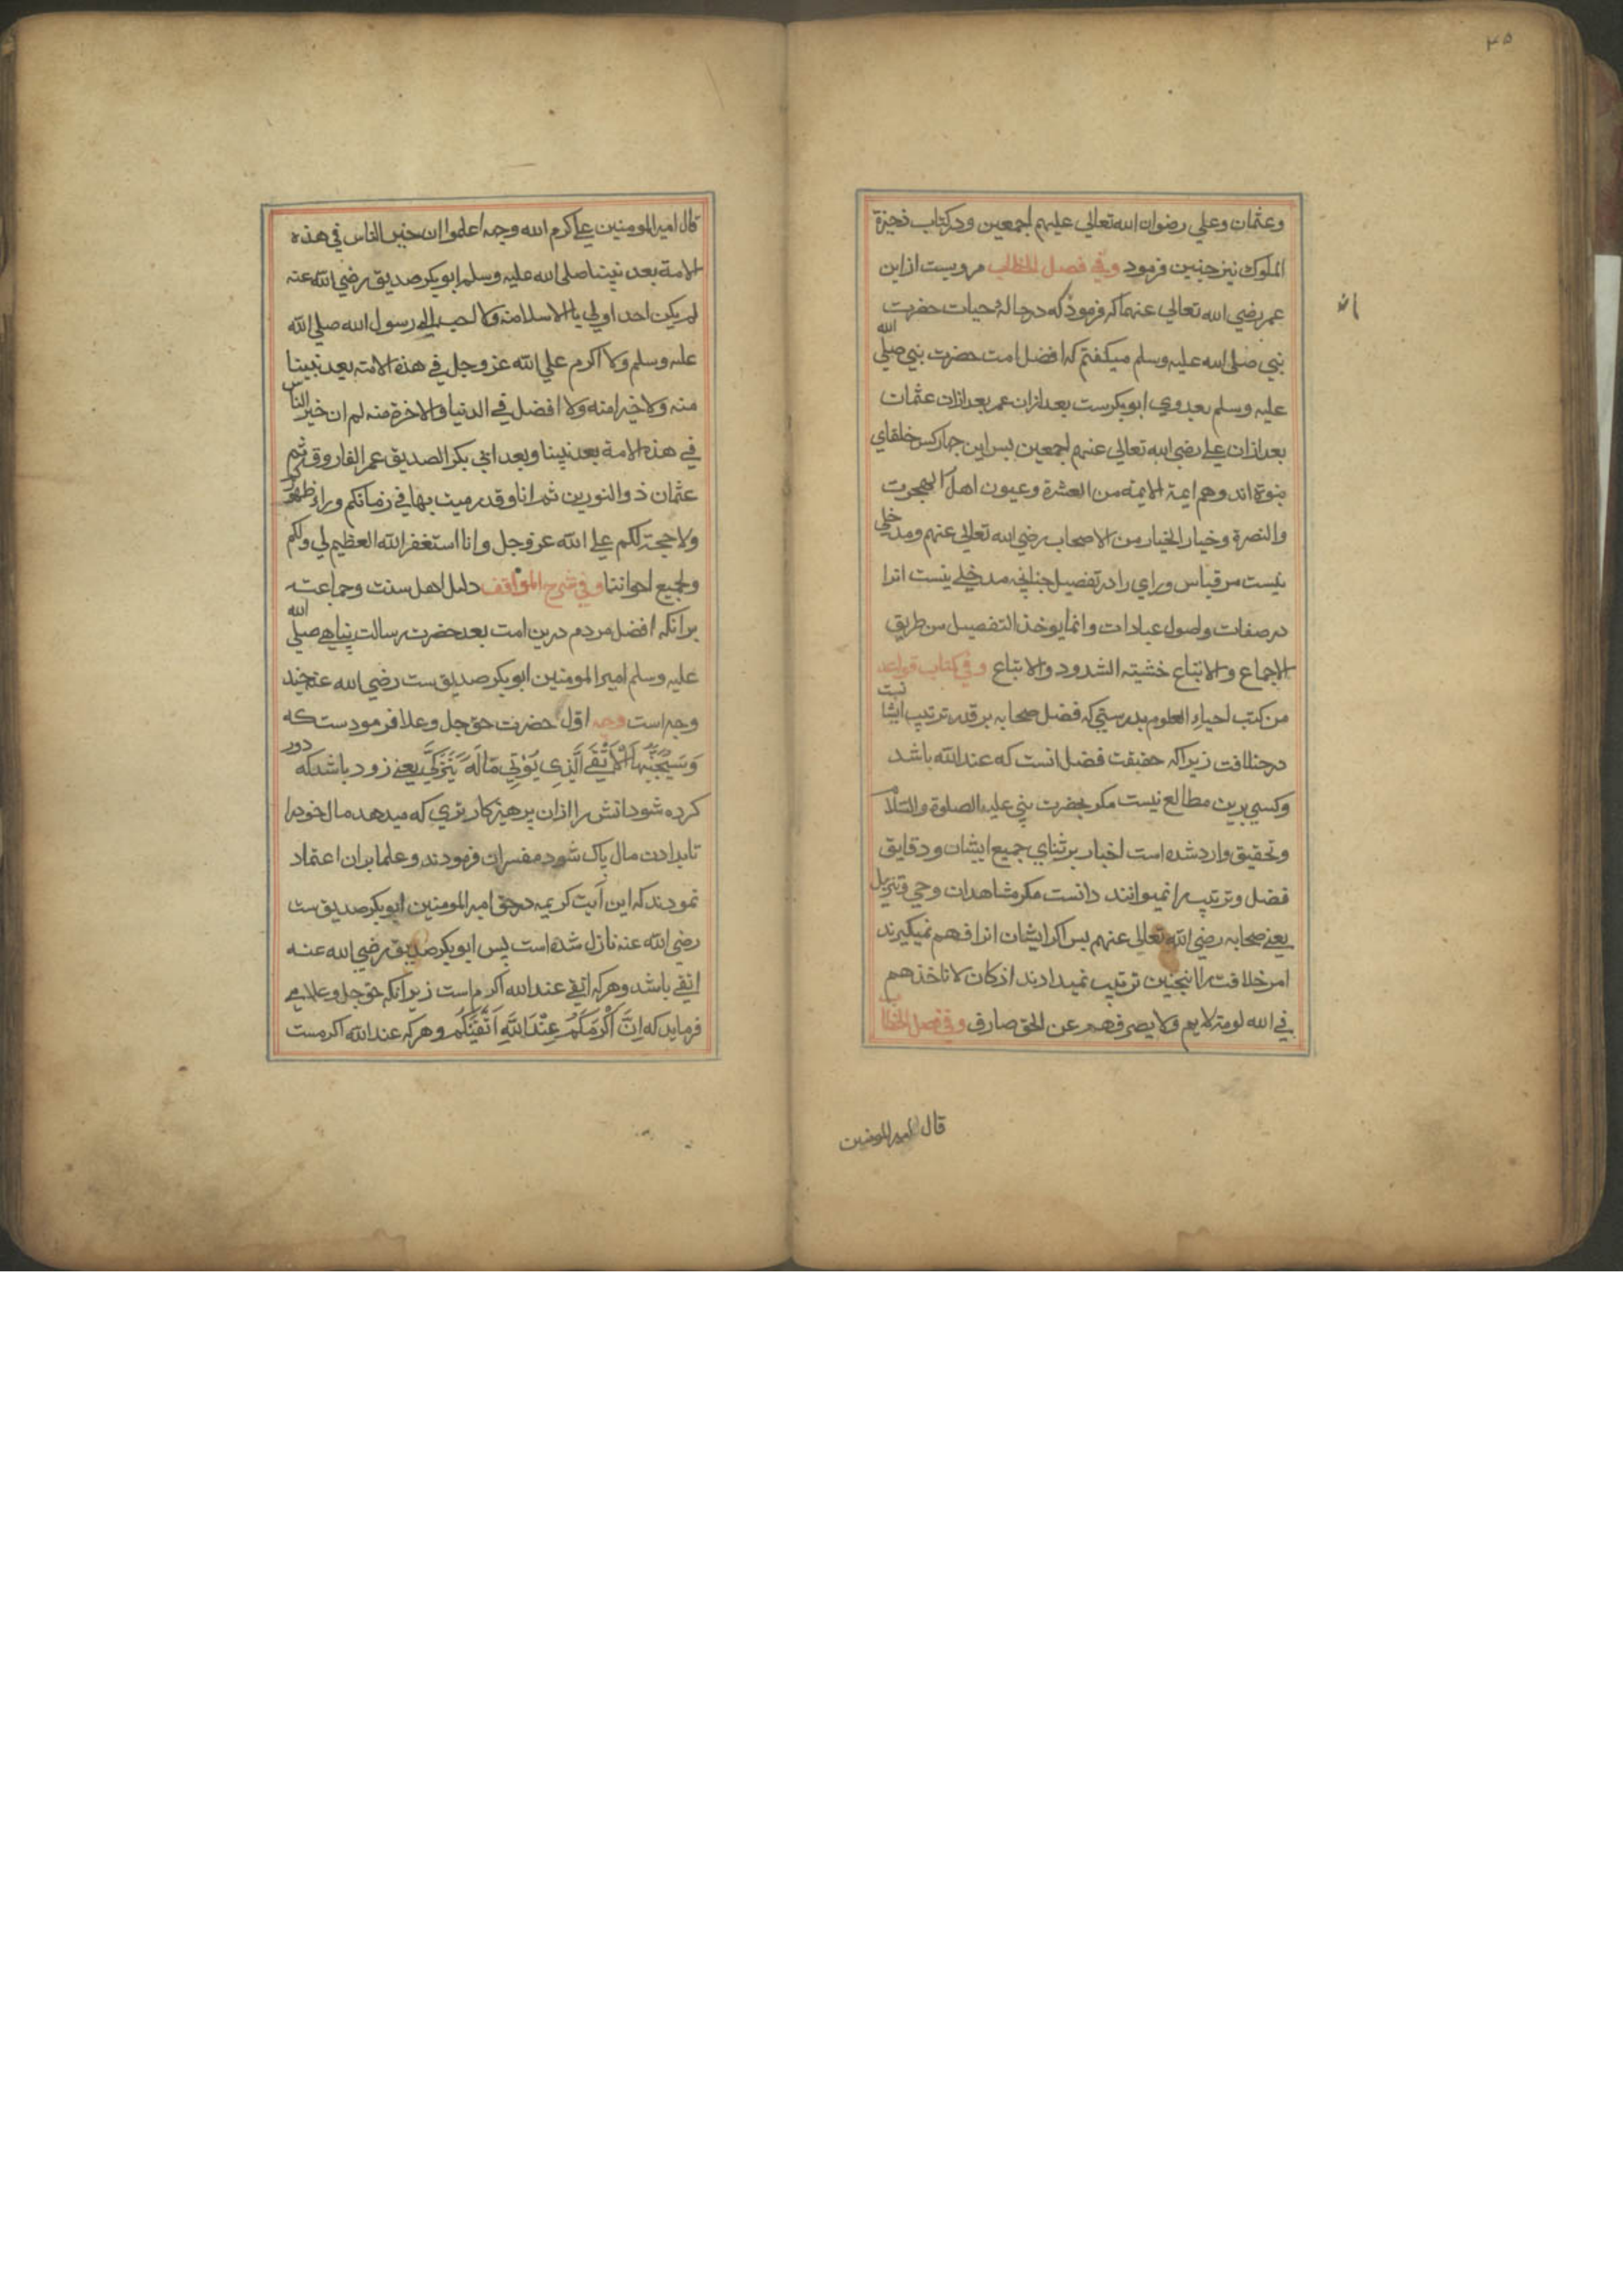 ٣٥
وعثمان وعلي رضوان الله تعالي عليهم اجمعين ودر كتاب ذخيرة
الملوك نيز چنين فرمود وفي فصل الخطاب مرويست از ابن
عمر رضي الله تعالي عنهما كه فرموذ كه در حالة حيات حضرت
نبي صلى الله عليه وسلم ميكفتم كه افضل امت حضرت نبي صلي الله
عليه وسلم بعد وي ابو بكرست بعد ازان عمر بعد ازان عثمان
بعد ازان علي رضي الله تعالى عنهم اجمعين بس اين چهار كس خلفاي
بنوة اند وهم ايمة الايمه من العشرة وعيون اهل الهجرت
والنصرة وخيار الخيار من الاصحاب رضي الله تعالى عنهم ومدخلي
نيست مر قياس وراي را در تفصيل چنانچه مدخلي نيست انرا
در صفات واصول عبادات وانما يوخذ التفصيل من طريق
الاجماع والاتباع خشيته الشدود والابتاع وفي كتاب قواعد
من كتب احياء العلوم بدرستي كه فضل صحابه بر قدر ترتيب ايشا نست
در خلافت زيراكه حقيقت فضل انست كه عند الله باشد
وكسي برين مطالع نيست مكر حضرت نبي عليه الصلوة والسلام
وتحقيق وارد شده است اخبار بر ثناي جميع ايشان ودقايق
فضل وترتيب را نميوانند دانست مكر مشاهدان وحي وتنزيل
يعني صحابه رضي الله تعالى عنهم بس اكر ايشان انرا فهم نميكيرند
امر خلافت را اينچنين ترتيب نميدادند اذ كان لا تاخذهم
في الله لومة لايم ولا يصرفهم عن الحق صارف وفي فصل الخطاب
قال امير المومنين
قال امير المومنين علي كرم الله وجهه اعلموا ان خير الناس في هذه
الامة بعد نبينا صلى الله عليه وسلم ابو بكر صديق رضي الله عنه
لم يكن احد اولي بالاسلام منه ولا احب الي رسول الله صلي الله
عليه وسلم ولا اكرم علي الله عز وجل في هذه الامته بعد نبينا
منه ولا خيرا منه ولا افضل في الدنيا والاخرة منه لم ان خير الناس
في هذه الامة بعد نبينا وبعد ابي بكر الصديق عمر الفاروق ثم
عثمان ذو النورين ثم انا وقد رميت بها في زمانكم وراء ظهوركم
ولا حجة لكم علي الله عز وجل وانا استغفر الله العظيم لي ولكم
ولجميع اخواننا وفي شرح المواقف دليل اهل سنت وجماعته
برانكه افضل مردم درين امت بعد حضرت رسالت پناهي صلي الله
عليه وسلم امير المومنين ابو بكر صديق ست رضي الله عنه چند
وجه است وجه اول حضرت حق جل وعلا فرمودست كه
وَسَيُجَنَّبُهَا الْاَتْقَي الَّذِي يُوْتِي مَالَهُ يَتَزَكَّي يعني زود باشد كه دور
كرده شود اتش را ازان پرهيز كار تري كه ميدهد مال خود را
تا بدادن مال پاك شود مفسران فرمودند وعلما بران اعتماد
نمودند كه اين آيت كريمه در حق امير المومنين ابو بكر صديق ست
رضي الله عنه نازل شده است پس ابو بكر صديق رضي الله عنه
اتقي باشد وهر كه اتقي عند الله اكرم است زيرانكه حق جل وعلا مي
فرمايد كه اِنَّ اَكْرَمَكُمْ عِنْدَ اللهِ اَتْقَيكُم وهر كه عند الله اكرمست